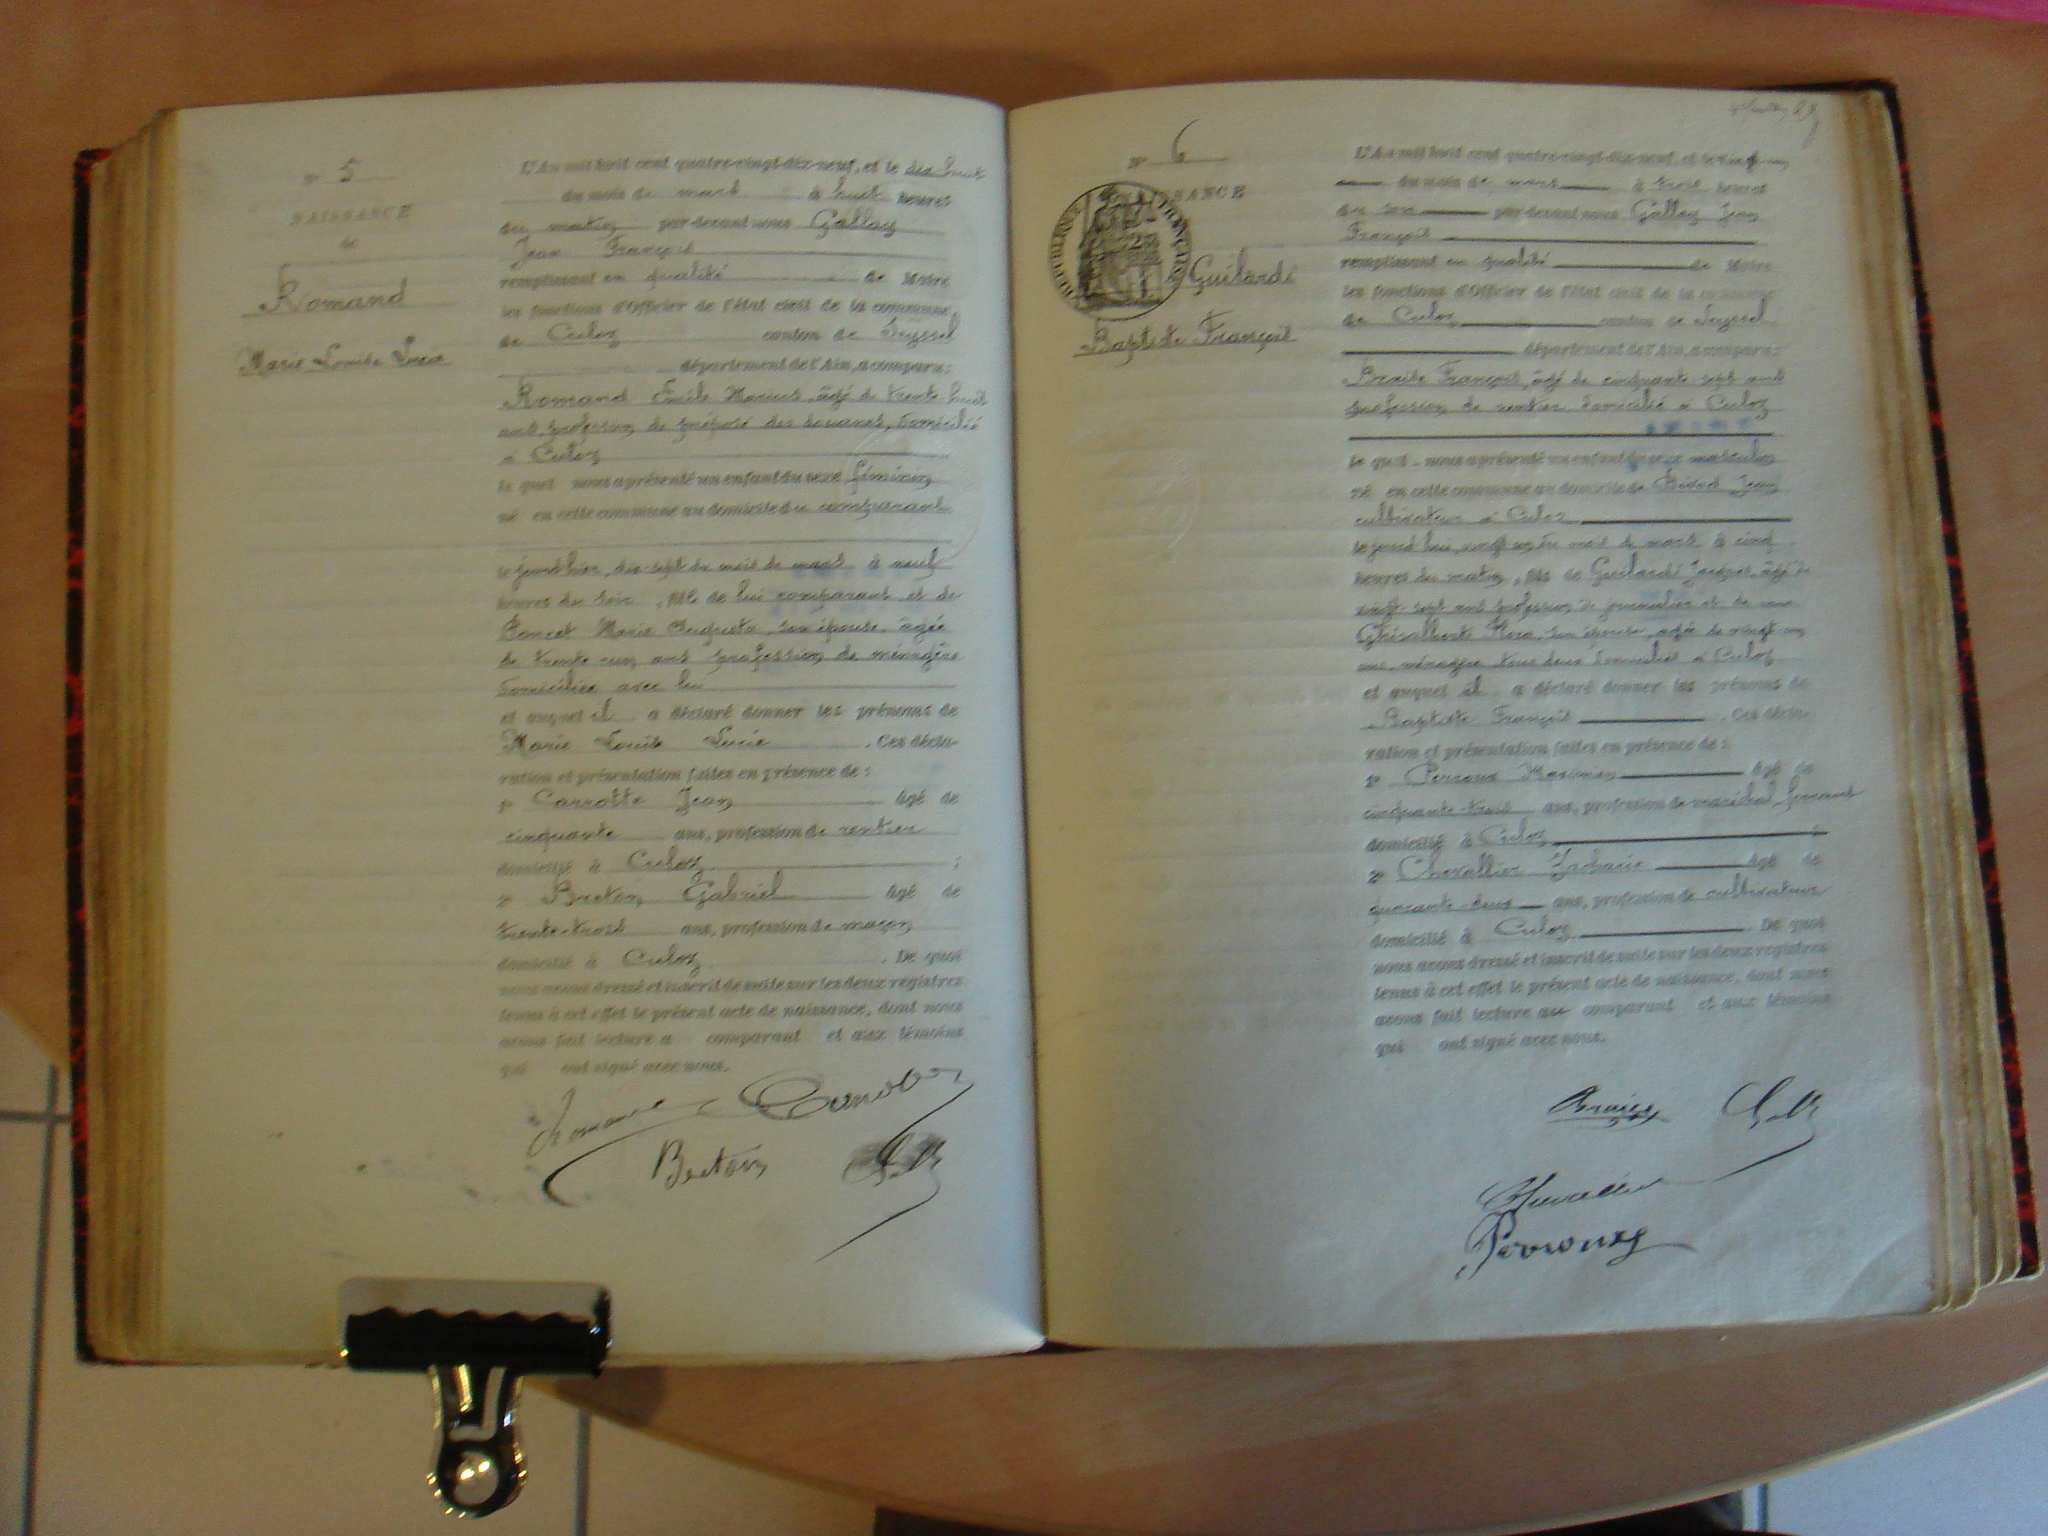 N° 5
NAISSANCE
de
Romand
Marie Louise Lucie
L'An mil huit cent quatre-vingt-dix-neuf, et le dix huit
du mois de mars à huit heures
du matin par-devant nous Gallay
Jean François
remplissant en qualité de Maire
les fonctions d'Officier de l'état civil de la commune
de Culoz canton de Seyssel
département de l'Ain, a comparu :
Romand Emile Marius, âgé de trente huit
ans, profession de préposé des douanes, domicilié
à Culoz
le quel nous a présenté un enfant du sexe féminin
né en cette commune au domicile du comparant
le jourd'hier, dix-sept du mois de mars à neuf
heures du soir, fille de lui comparant et de
Poncet Marie Augusta, son épouse, âgée
de trente un ans profession de ménagère
domiciliée avec lui
et auquel il a déclaré donner les prénoms de
Marie Louise Lucie. Ces décla-
ration et présentation faites en présence de :
1° Carrotte Jean âgé de
cinquante ans, profession de rentier
domicilié à Culoz ;
2° Breton Gabriel âgé de
trente-trois ans, profession de maçon
domicilié à Culoz. De quoi
nous avons dressé et inscrit de suite sur les deux registres
tenus à cet effet le présent acte de naissance, dont nous
avons fait lecture a comparant et aux témoins
qui ont signé avec nous.
Romand
Breton
N° 6
NAISSANCE
REPUBLIQUE FRANÇAISE
Guilardi
Baptiste François
L'An mil huit cent quatre-vingt-dix-neuf, et le vingt un
du mois de mars à trois heures
du soir par-devant nous Gallay Jean
François
remplissant en qualité de Maire
les fonctions d'Officier de l'état civil de la commune
de Culoz canton de Seyssel
département de l'Ain, a comparu :
François, âgé de cinquante sept ans
profession de rentier domicilié à Culoz
le quel nous a présenté un enfant du sexe masculin
né en cette commune au domicile de Jean
cultivateur à Culoz
le jourd'hui, vingt un du mois de mars à cinq
heures du matin, fils de Guilardi Jacques, âgé de
vingt sept ans profession de journalier et de
Ghisalberti Rosa, son épouse, âgée de vingt un
ans, ménagère tous deux domiciliés à Culoz
et auquel il a déclaré donner les prénoms de
Baptiste François. Ces décla-
ration et présentation faites en présence de :
1° Perroux Maximin âgé de
cinquante-trois ans, profession de maréchal ferrant
domicilié à Culoz ;
2° Chevallier Zacharie âgé de
quarante-deux ans, profession de cultivateur
domicilié à Culoz. De quoi
nous avons dressé et inscrit de suite sur les deux registres
tenus à cet effet le présent acte de naissance, dont nous
avons fait lecture au comparant et aux témoins
qui ont signé avec nous.
Chevallier
Perroux